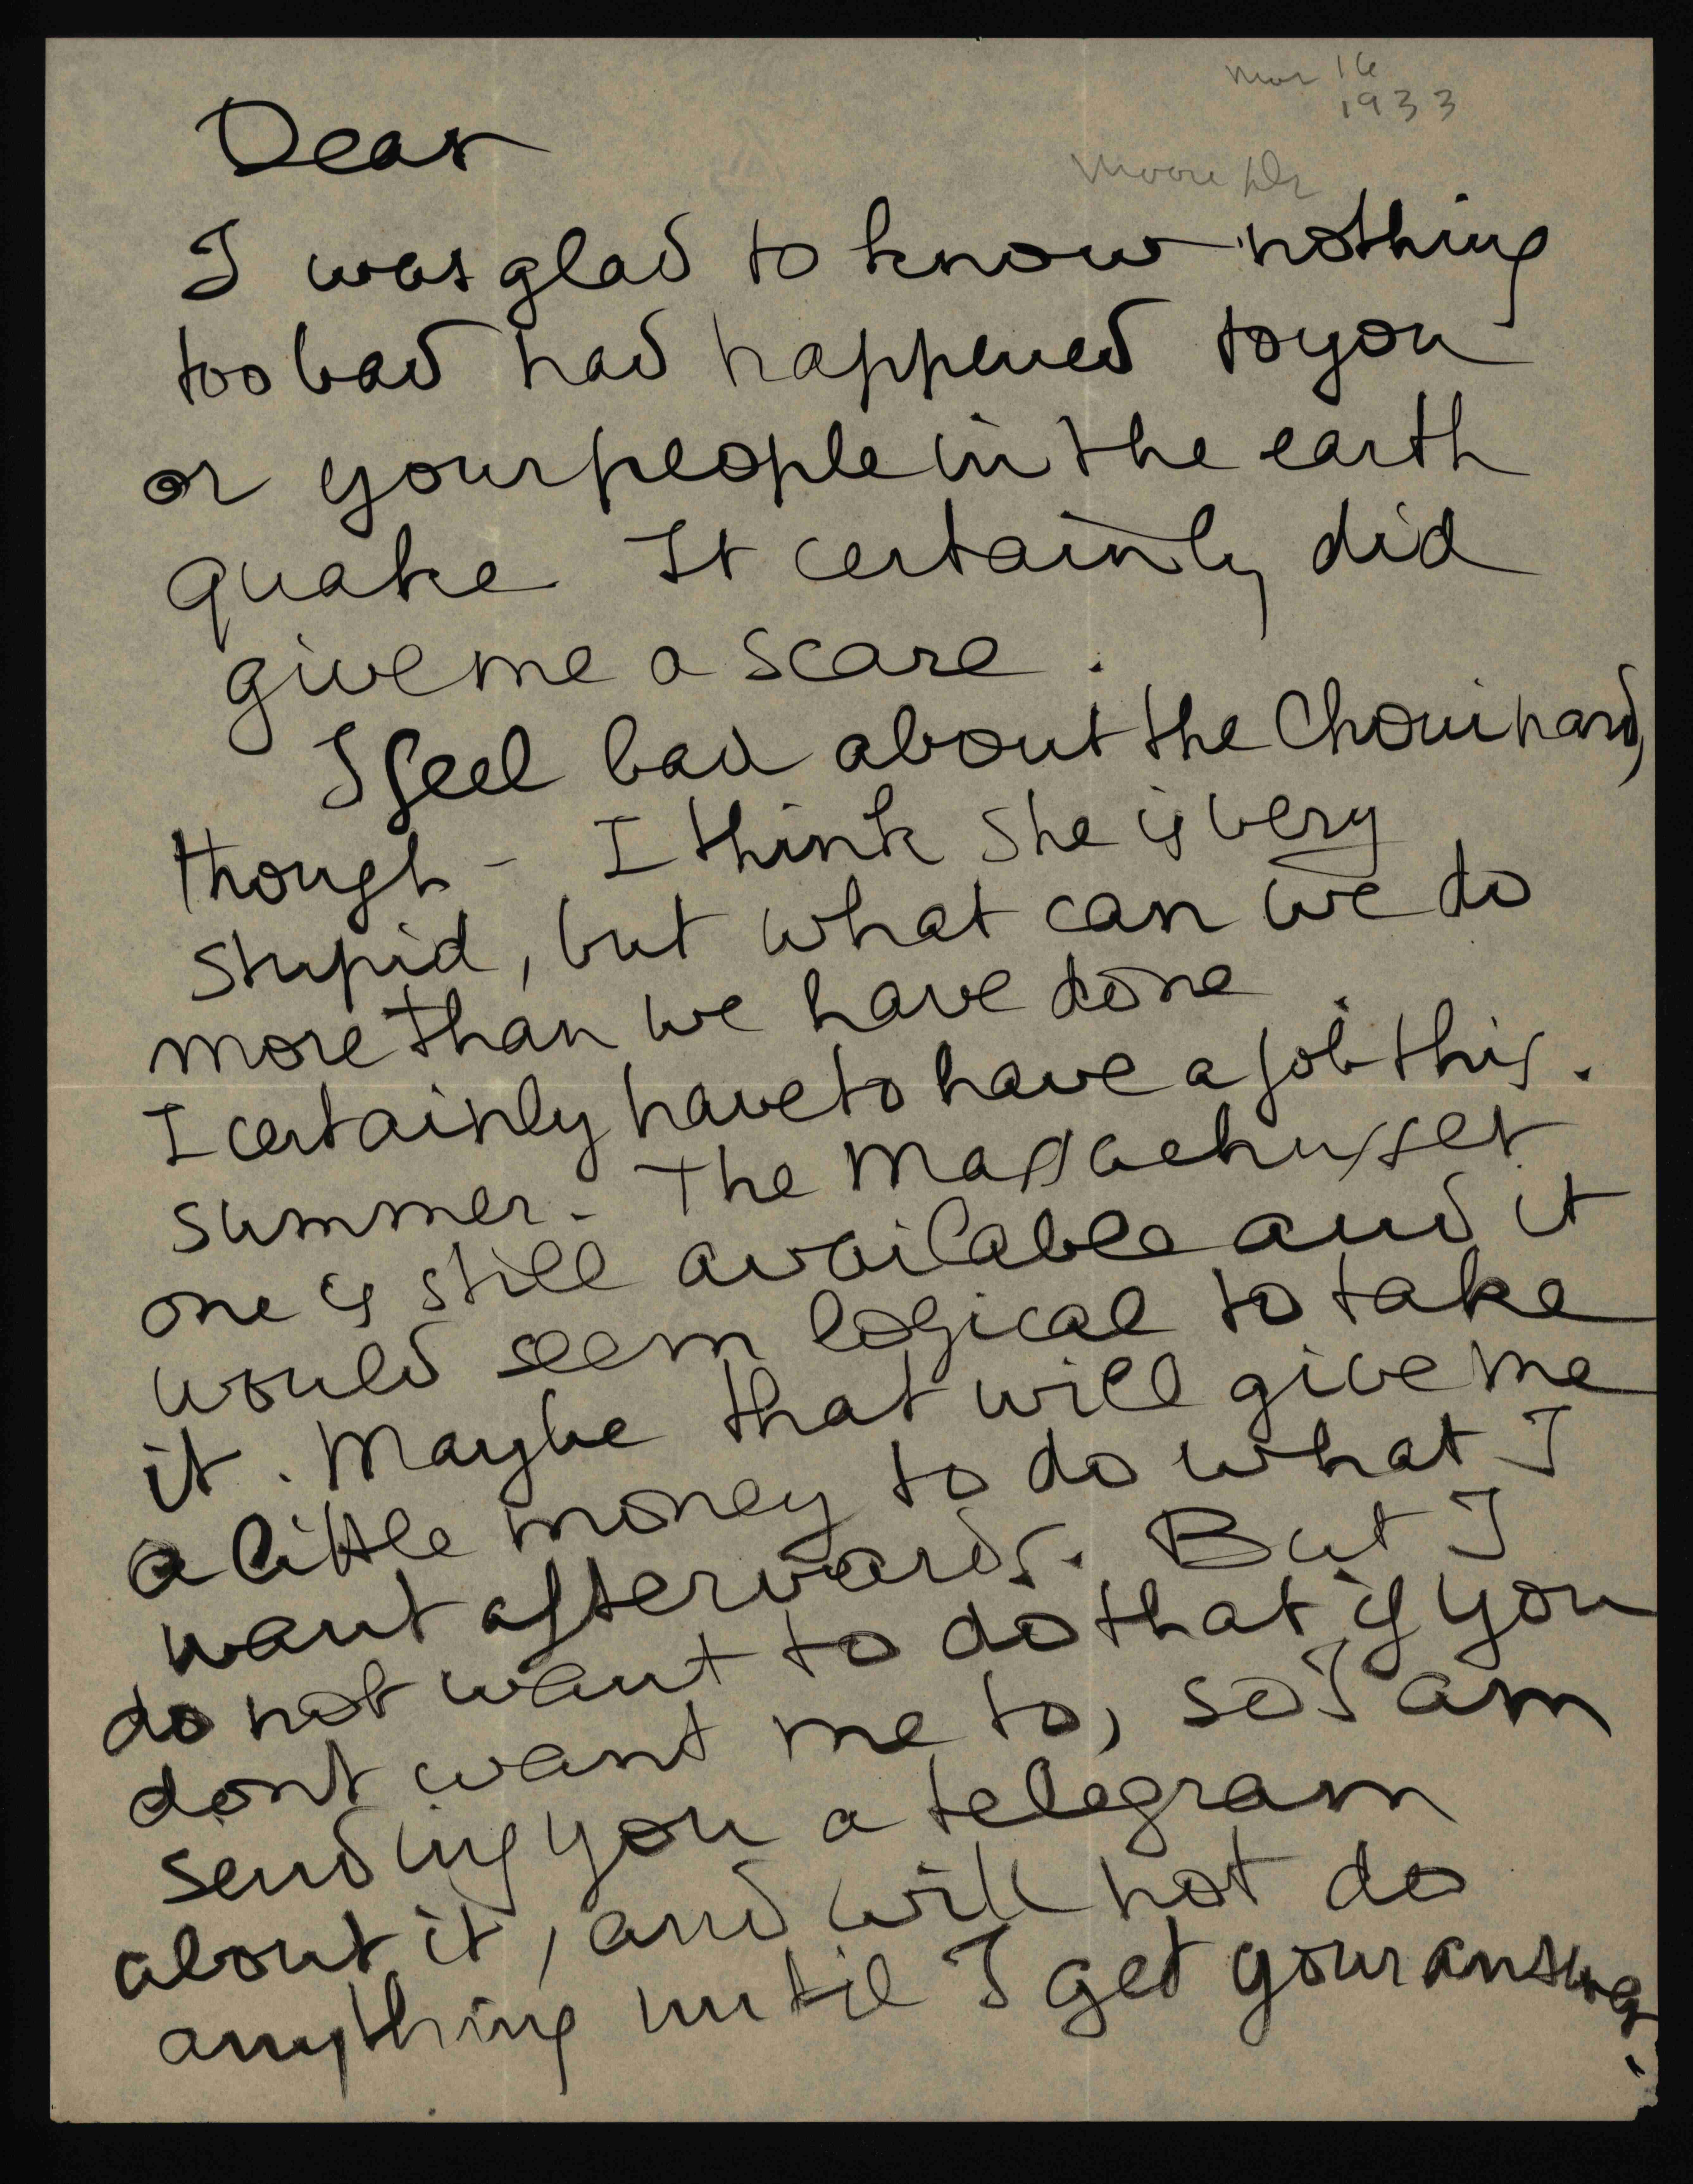 Mar 16
1933
Moore Dr
Dear
I was glad to know nothing
too bad had happened to you
or your people in the earth
quake It certainly did
give me a scare.
I feel bad about the Chouinard,
though - I think she is very
stupid, but what can we do
more than we have done
I certainly have to have a job this.
summer. The Massachusset
one is still available and it
would seem logical to take
it. Maybe that will give me
a little money to do what I
want afterwards. But I
do not want to do that if you
dont want me to, so I am
sending you a telegram
about it, and will not do
anything until I get your answer.